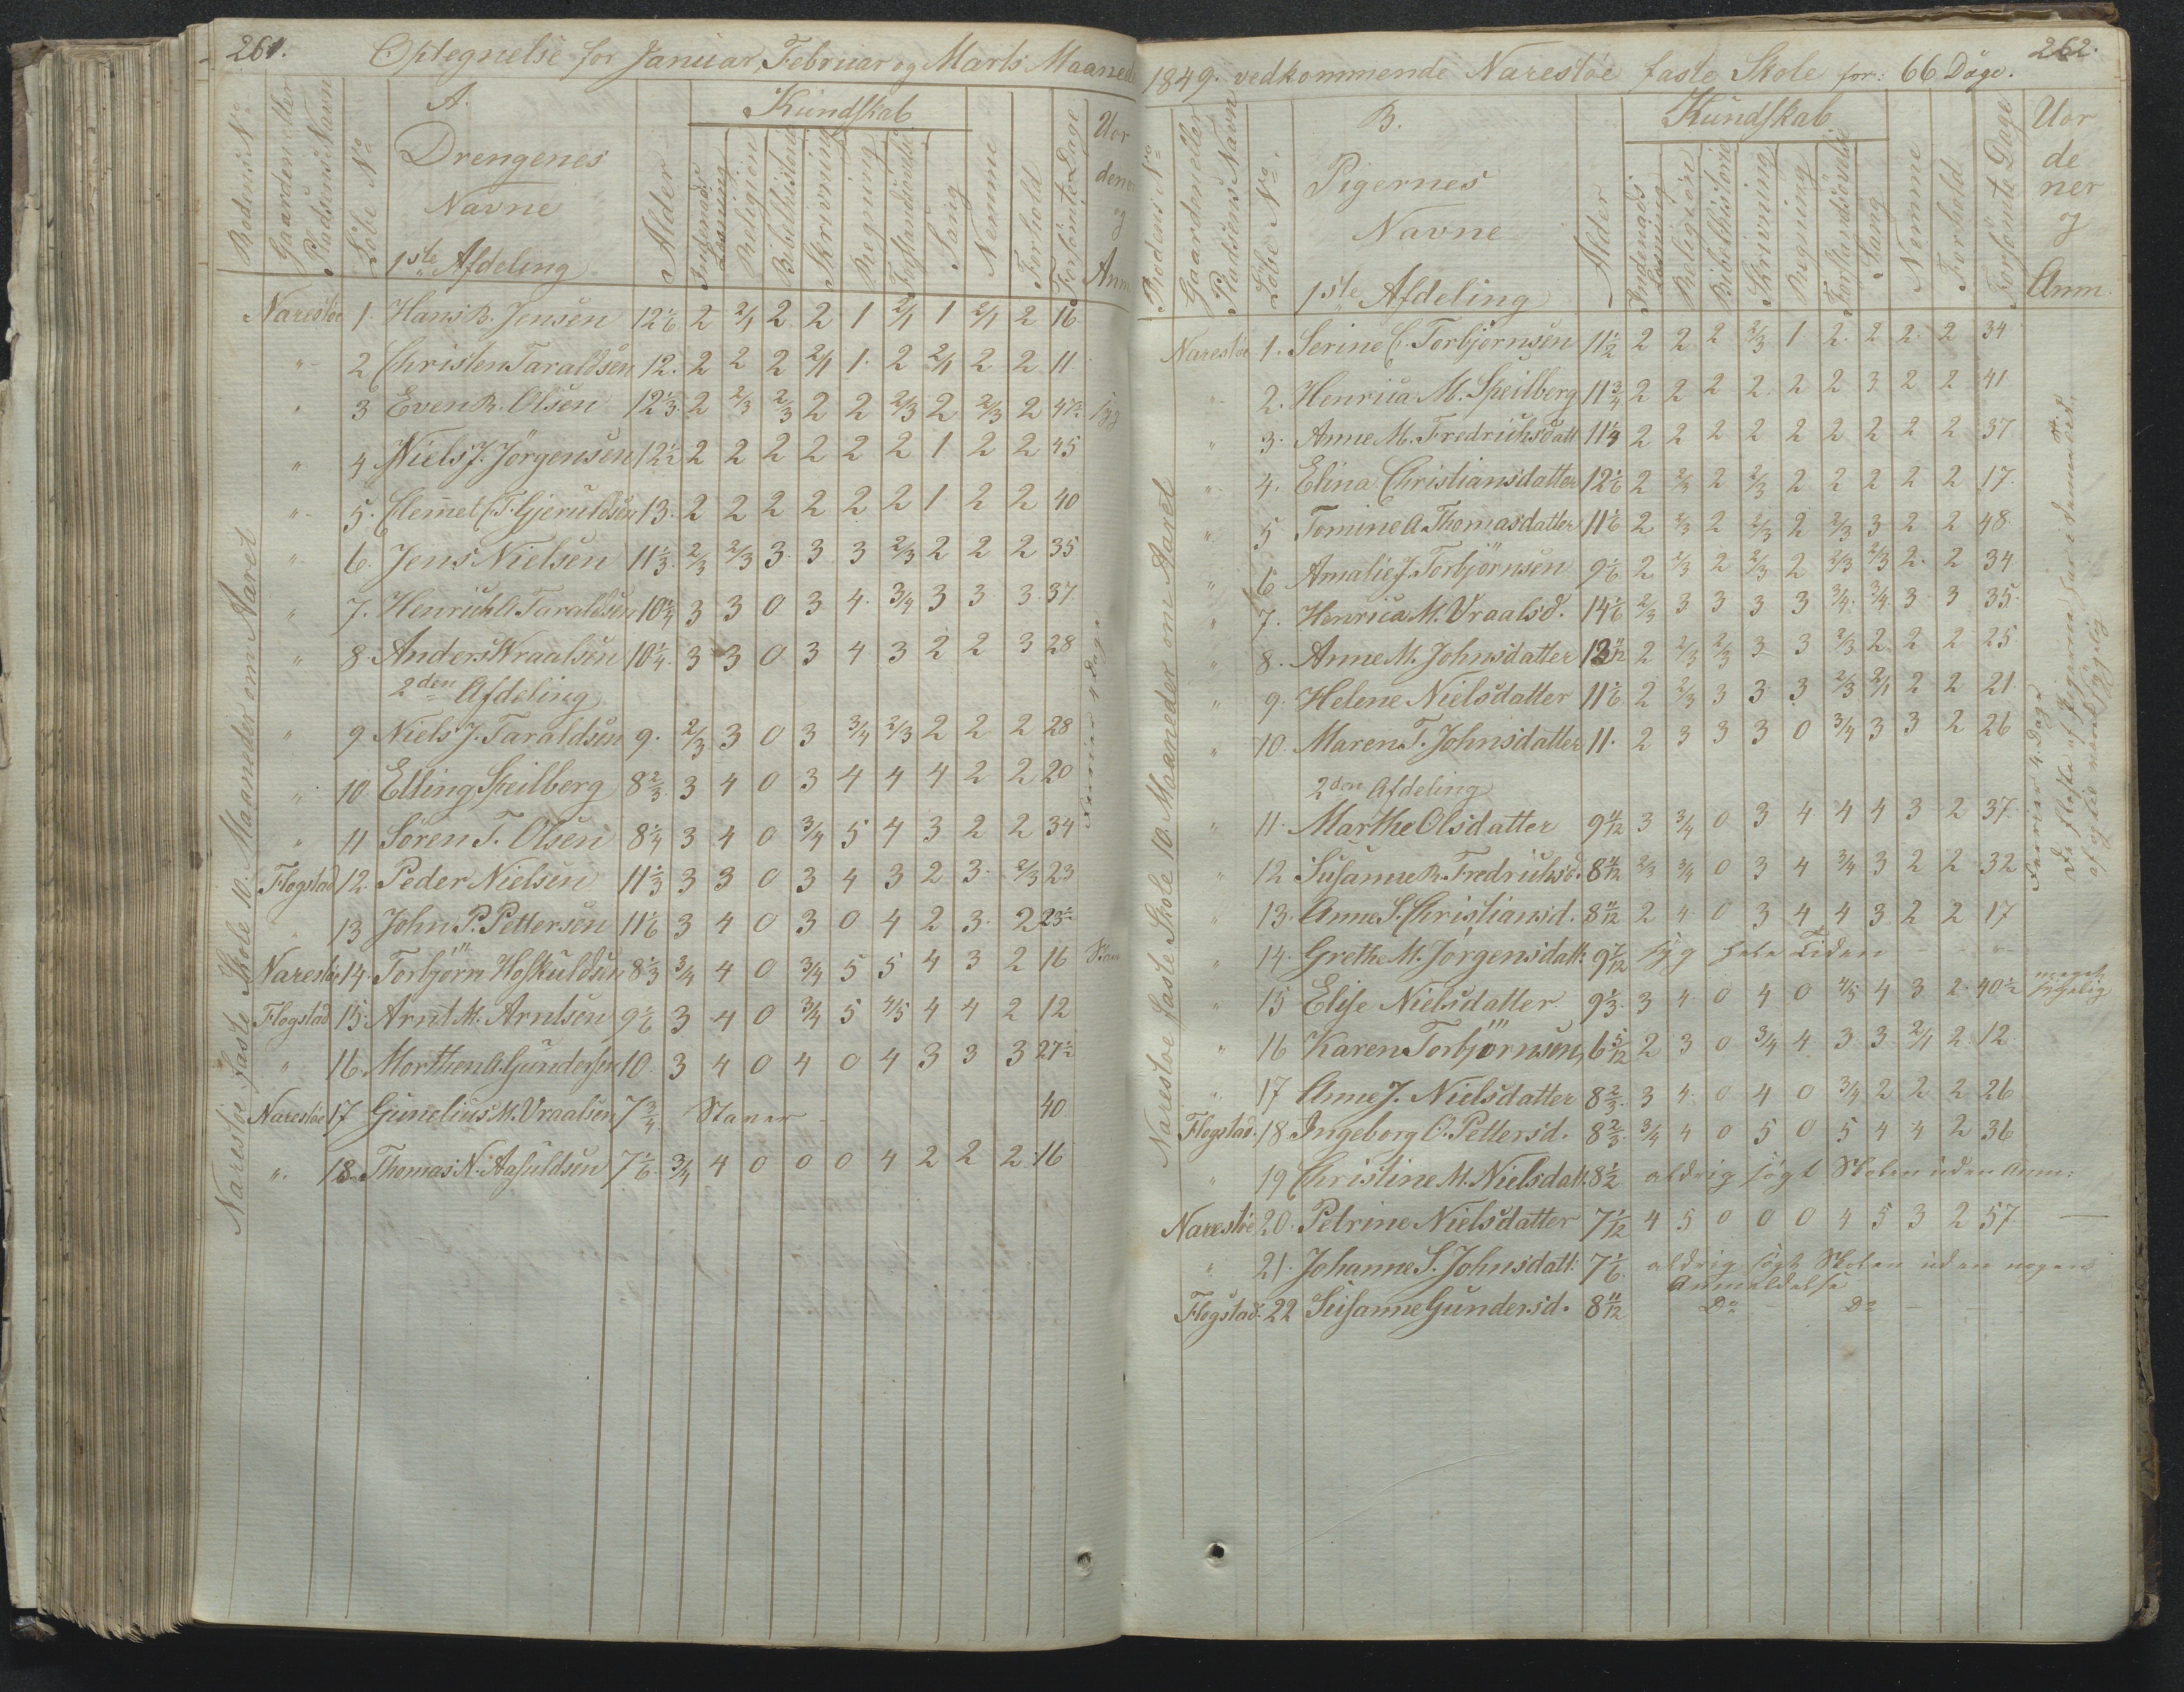 261.
Optegnelse for Januar, Februar og Marts Maaned
Rodens No
Gaardens eller Pladsens Navn
Löbe No
A.
Drengenes
Navne
1ste Afdeling
Alder
Kundskab
Indenads Læsning
Religion
Bibelhistorie
Skrivning
Regning
Forstandsövelse
Sang
Nemme
Forhold
Forsömte Dage
Uor
dener
og
Anm
Narestöe faste Skole 10. Maaneder om Aaret
Narestöe 1. Hans B. Jensen 12 1/6 2 2/1 2 2 1 2/1 1 2/1 2 16
" 2 Christen Taraldsen 12. 2 2 2 2/1 1. 2 2/1 2 2 11.
" 3 Even R. Olsen 12 1/3. 2 2/3 2/3 2 2 2/3 2 2/3 2 syg
" 4 Niels J. Jörgensen 12 1/2 2 2 2 2 2 2 1 2 2 45
" 5. Clem̅et C. T. Gjeruldsen 13. 2 2 2 2 2 2 1 2 2 40
" 6. Jens Nielsen 11 1/3. 2/3 2/3 3. 3 3 2/3 2 2 2 35
" 7. Henrich A. Taraldsen 10 3/4 3 3 0 3 4. 3/4 3 3 3. 37
" 8. Anders Wraalsen 10 1/4. 3 3 0 3 4 3 2 2 3 28
2den Afdeling
" 9 Niels J. Taraldsen 9. 2/3 3 0 3 3/4 2/3 2 2 2 28
" 10. Elling Speilberg 8 2/3. 3 4 0 3 4 4 4 2 2 20
" 11 Sören T. Olsen 8 1/4 3 4 0 3/4 5 4 3 2 2 34
Flogstad 12. Peder Nielsen 11 1/3 3 3 0 3 4 3 2 3. 2/3 23
" 13 John P. Pettersen 11 1/6 3 4 0 3 0 4 2 3. 2 23 1/2
Narestöe 14. Torbjörn Hoskuldsen 8 1/3 3/4 4 0 3/4 5 5 4 3 2 16
Flogstad 15. Arnt M. Arntsen 9 1/6 3 4 0 3/4 5 4/5 4 4 2 12
" 16. Morthen A. Gundersen 10. 3 4 0 4 0 4 3 3 3 27 1/2
Narestöe 17 Gunelius M. Vraalsen 7 3/4. Stamer 40
" 18. Thomas N. Aasuldsen 7 1/6 3/4 4 0 0 0 4 2 2 2. 16
Ferier 4 Dage
262.
1849. vedkommende Narestöe faste Skole for: 66 Dage.
Rodens No
Gaardens eller Pladsens Navn
Löbe No.
B.
Pigernes
Navne
1ste Afdeling
Alder
Kundskab
Indenads Læsning
Religion
Bibelhistorie
Skrivning
Regning
Forstandsövelse
Sang
Nemme
Forhold
Forsömte Dage
Uor
de
ner
og
Anm.
Narestöe faste Skole 10. Maaneder om Aaret
Narestöe 1. Serine C. Torbjörnsen 11 1/2 2 2 2 2/3 1. 2. 2 2. 2 34
" 2. Henrica M. Speilberg 11 3/4 2 2 2 2. 2 2 3 2 2 41
" 3. Anne M. Fredrichsdatt 11 1/3 2 2 2 2 2 2 2 2 2 37
" 4. Elina Christiansdatter 12 1/6 2 2/3 2 2/3 2 2 2 2 2 17.
" 5 Tomine A Thomasdatter 11 1/6 2 2/3 2 2/3 2 2/3 3 2 2 48
" 6 Amalie J. Torbjörnsen 9 1/6 2 2/3 2 2/3 2 2/3 2/3 2. 2 34
" 7. Henrica M. Vraalsd. 14 1/6 2/3 3 3 3 3 3/4. 3/4. 3 3 35.
" 8. Anne M. Johnsdatter 12 11/12 2 2/3 2/3 3 3 2/3 2 2 2 25
" 9. Helene Nielsdatter 11 1/6. 2 2/3 3 3 3 2/3 2/1 2 2 21.
" 10. Maren T. Johnsdatter 11. 2 3 3 3 0 3/4 3 3 2 26
2den Afdeling
" 11. Marthe Olsdatter 9 11/12 3 3/4 0 3 4 4 4 3 2 37.
" 12 Susanne R. Fredrichsd. 8 11/12 2/3 3/4 0 3 4 3/4 3 2 2 32
" 13. Anne S. Christiansd. 8 11/12 2 4 0 3 4 4 3 2 2 17
" 14. Grethe M. Jörgensdatt. 9 7/12 syg hele Tiden
" 15 Elise Nielsdatter. 9 1/3. 3 4. 0 4 0 4/5 4 3 2. 40 1/2 meget sygelig
" 16 Karen Torbjörnsen, 6 5/12 2 3 0 3/4 4 3 3 2/1 2. 12
" 17 Anne J. Nielsdatter 8 2/3. 3 4. 0 4 0 3/4 2 2 2 26
Flogstad. 18. Ingeborg O. Pettersd. 8 2/3. 3/4 4 0 5 0 5 4 4 2 36
" 19 Christine M. Nielsdatt. 8 1/2 aldrig sögt Skolen uden Anm:
Narestöe 20. Petrine Nielsdatter 7 1/12 4 5 0 0 0 4 5 3 2 57.
" 21. Johanne S. Johnsdatt: 7 1/6. aldrig sögt Skolen uden nogen
Anmeldelse
Flogstad. 22 Susanne Gundersd. 8 11/12 Do Do
Ferier 4. Dage
De fleste af Pigerne har